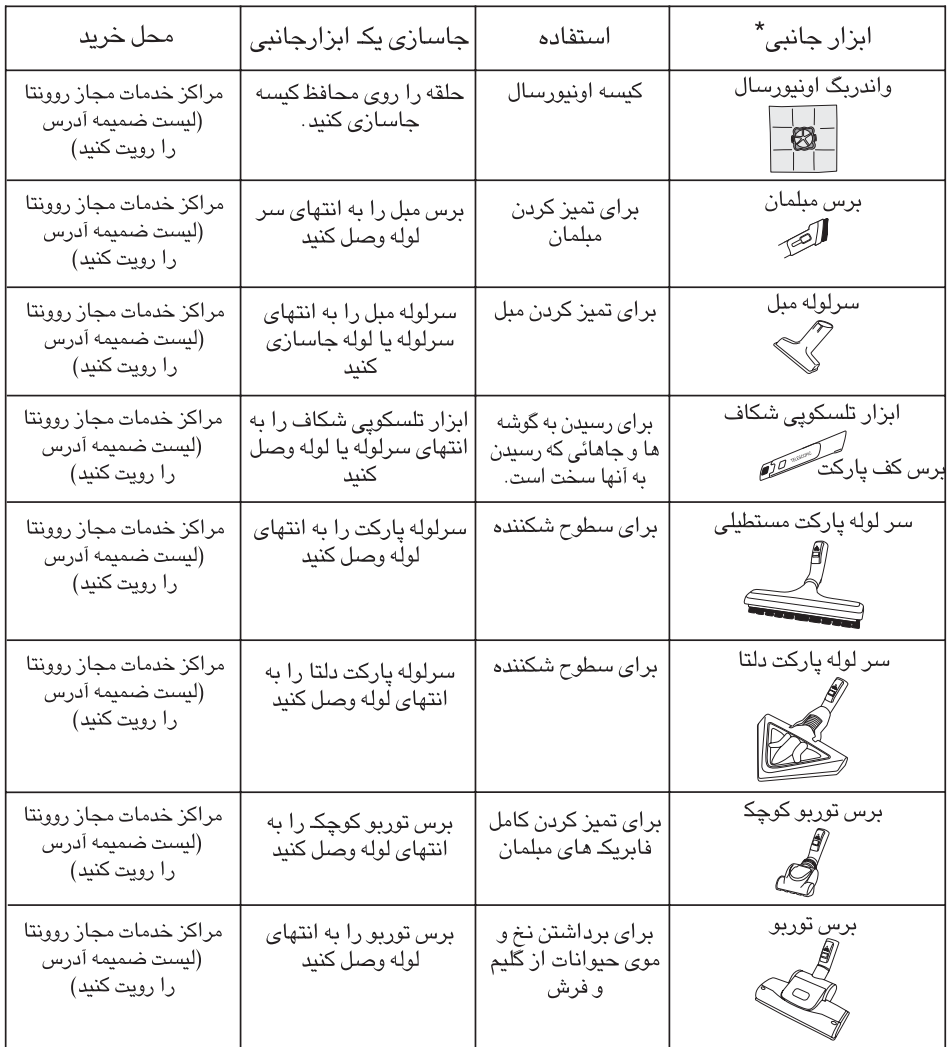 ابزار جانبی*
استفاده
جاسازی یک ابزارجانبی
محل خرید
واندربگ اونیورسال
کیسه اونیورسال
حلقه را روی محافظ کیسه
جاسازی کنید.
مراکز خدمات مجاز روونتا
(لیست ضمیمه آدرس
را رویت کنید)
برس مبلمان
برای تمیز کردن
مبلمان
برس مبل را به انتهای سر
لوله وصل کنید
مراکز خدمات مجاز روونتا
(لیست ضمیمه آدرس
را رویت کنید)
سرلوله مبل
برای تمیز کردن مبل
سرلوله مبل را به انتهای
سرلوله یا لوله جاسازی
کنید
مراکز خدمات مجاز روونتا
(لیست ضمیمه آدرس
را رویت کنید)
ابزار تلسکوپی شکاف
TELESCOPIC
برس کف پارکت
برای رسیدن به گوشه
ها و جاهائی که رسیدن
به آنها سخت است.
ابزار تلسکوپی شکاف را به
انتهای سرلوله یا لوله وصل
کنید
مراکز خدمات مجاز روونتا
(لیست ضمیمه آدرس
را رویت کنید)
سر لوله پارکت مستطیلی
برای سطوح شکننده
سرلوله پارکت را به انتهای
لوله وصل کنید
مراکز خدمات مجاز روونتا
(لیست ضمیمه آدرس
را رویت کنید)
سر لوله پارکت دلتا
برای سطوح شکننده
سرلوله پارکت دلتا را به
انتهای لوله وصل کنید
مراکز خدمات مجاز روونتا
(لیست ضمیمه آدرس
را رویت کنید)
برس توربو کوچک
برای تمیز کردن کامل
فابریک های مبلمان
برس توربو کوچک را به
انتهای لوله وصل کنید
مراکز خدمات مجاز روونتا
(لیست ضمیمه آدرس
را رویت کنید)
برس توربو
برای برداشتن نخ و
موی حیوانات از گلیم
و فرش
برس توربو را به انتهای
لوله وصل کنید
مراکز خدمات مجاز روونتا
(لیست ضمیمه آدرس
را رویت کنید)